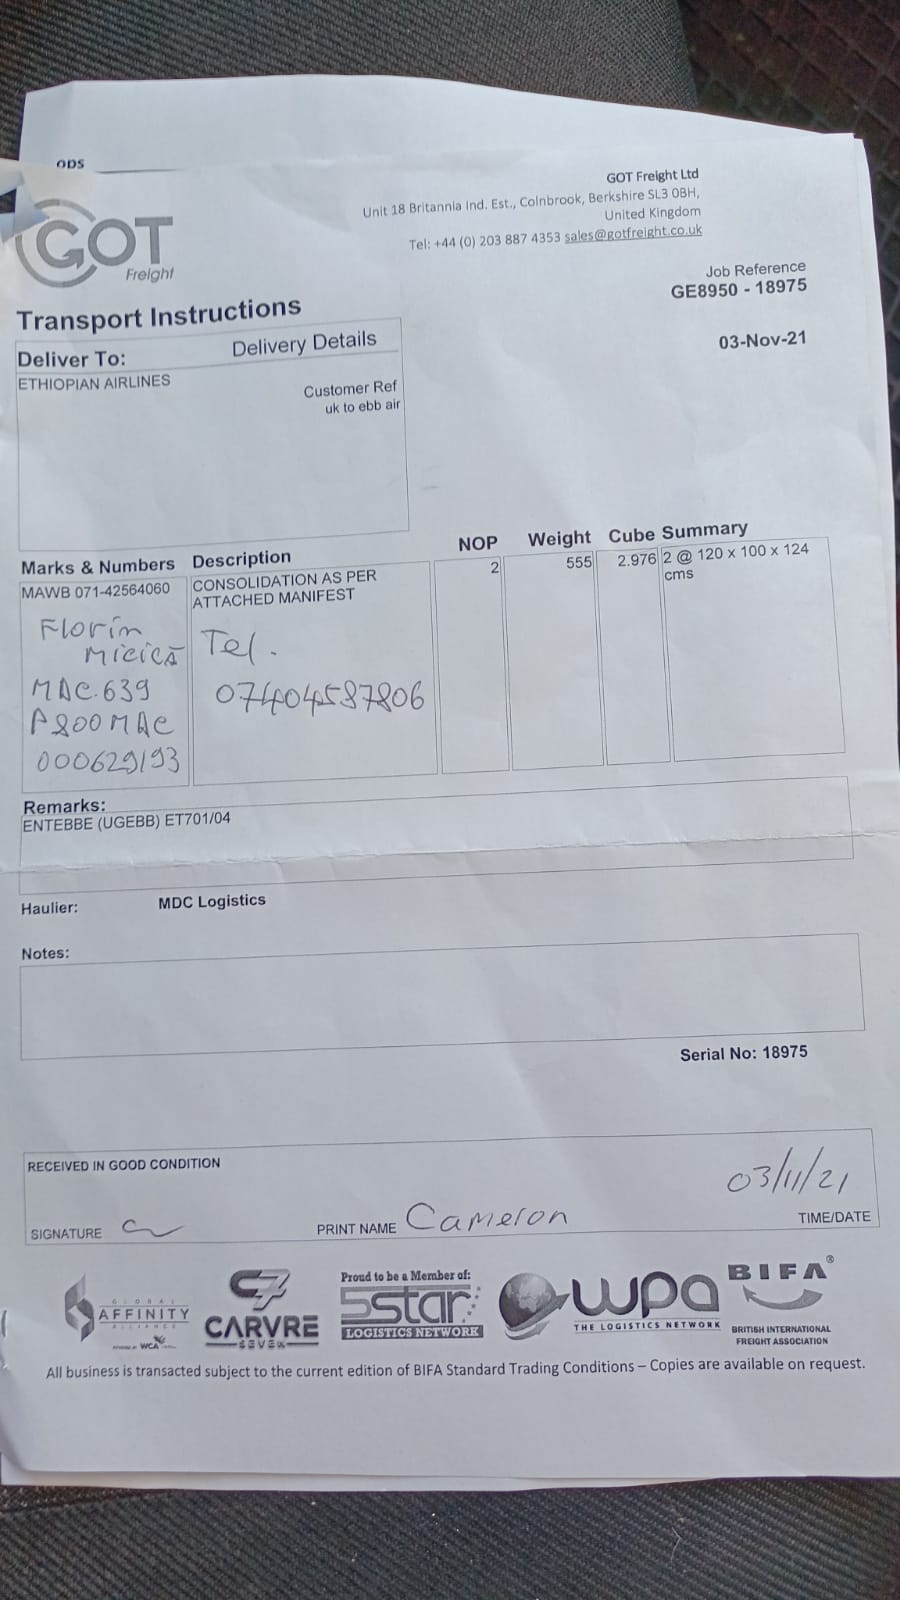 ODS
GOT
Freight
GOT Freight Ltd
Unit 18 Britannia Ind. Est., Colnbrook, Berkshire SL3 0BH,
United Kingdom
Tel: +44 (0) 203 887 4353 sales@gotfreight.co.uk
Job Reference
GE8950 - 18975
03-Nov-21
Transport Instructions
Deliver To: Delivery Details
ETHIOPIAN AIRLINES
Customer Ref
uk to ebb air
Marks & Numbers Description NOP Weight Cube Summary
MAWB 071-42564060 CONSOLIDATION AS PER 2 555 2.976 2 @ 120 x 100 x 124
ATTACHED MANIFEST cms
Florin Tel.
Micică
MAC.639 07404587806
P800MAC
000629193
Remarks:
ENTEBBE (UGEBB) ET701/04
Haulier: MDC Logistics
Notes:
Serial No: 18975
RECEIVED IN GOOD CONDITION
03/11/21
SIGNATURE PRINT NAME Cameron TIME/DATE
GLOBAL
AFFINITY
ALLIANCE
WCA
CARVRE
SEVEN
Proud to be a Member of:
5star
LOGISTICS NETWORK
wpa
THE LOGISTICS NETWORK
BIFA®
BRITISH INTERNATIONAL
FREIGHT ASSOCIATION
All business is transacted subject to the current edition of BIFA Standard Trading Conditions – Copies are available on request.